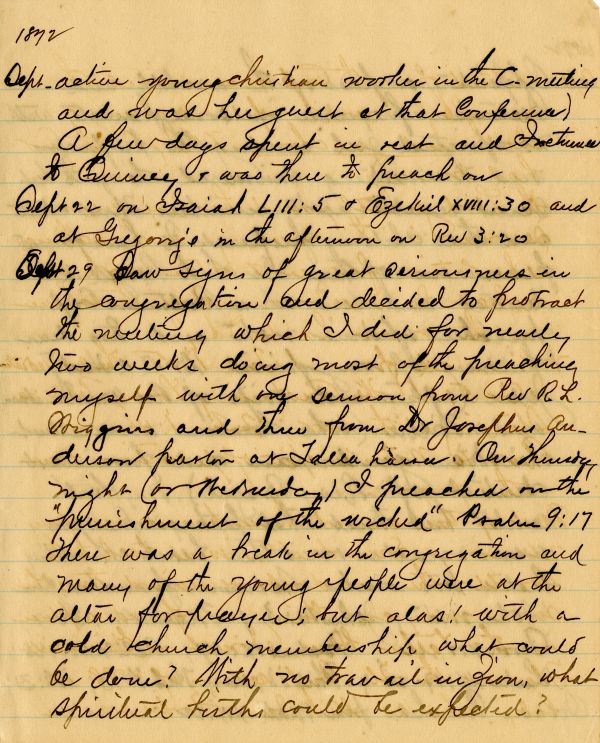 1872
Sept. active young christian worker in the C-meeting
and was her guest at that Conference)
A few days spent in rest and I returned
to Quincy & was there to preach on
Sept 22 on Isaiah LIII:5 & Ezekiel XVIII:30 and
at Gregory's in the afternoon on Rev 3:20
Sept 29 Saw signs of great seriousness in
the congregation and decided to protract
the meeting which I did for nearly
two weeks doing most of the preaching
myself with one sermon from Rev R. L.
Wiggins and three from Dr Josephus An-
derson pastor at Tallahassee. On Thursday
night (or Wednesday) I preached on the
"punishment of the wicked" Psalm 9:17
There was a break in the congregation and
many of the young people were at the
altar for prayer; but alas! with a
cold church membership what could
be done? With no travail in Zion, what
spiritual births could be expected?